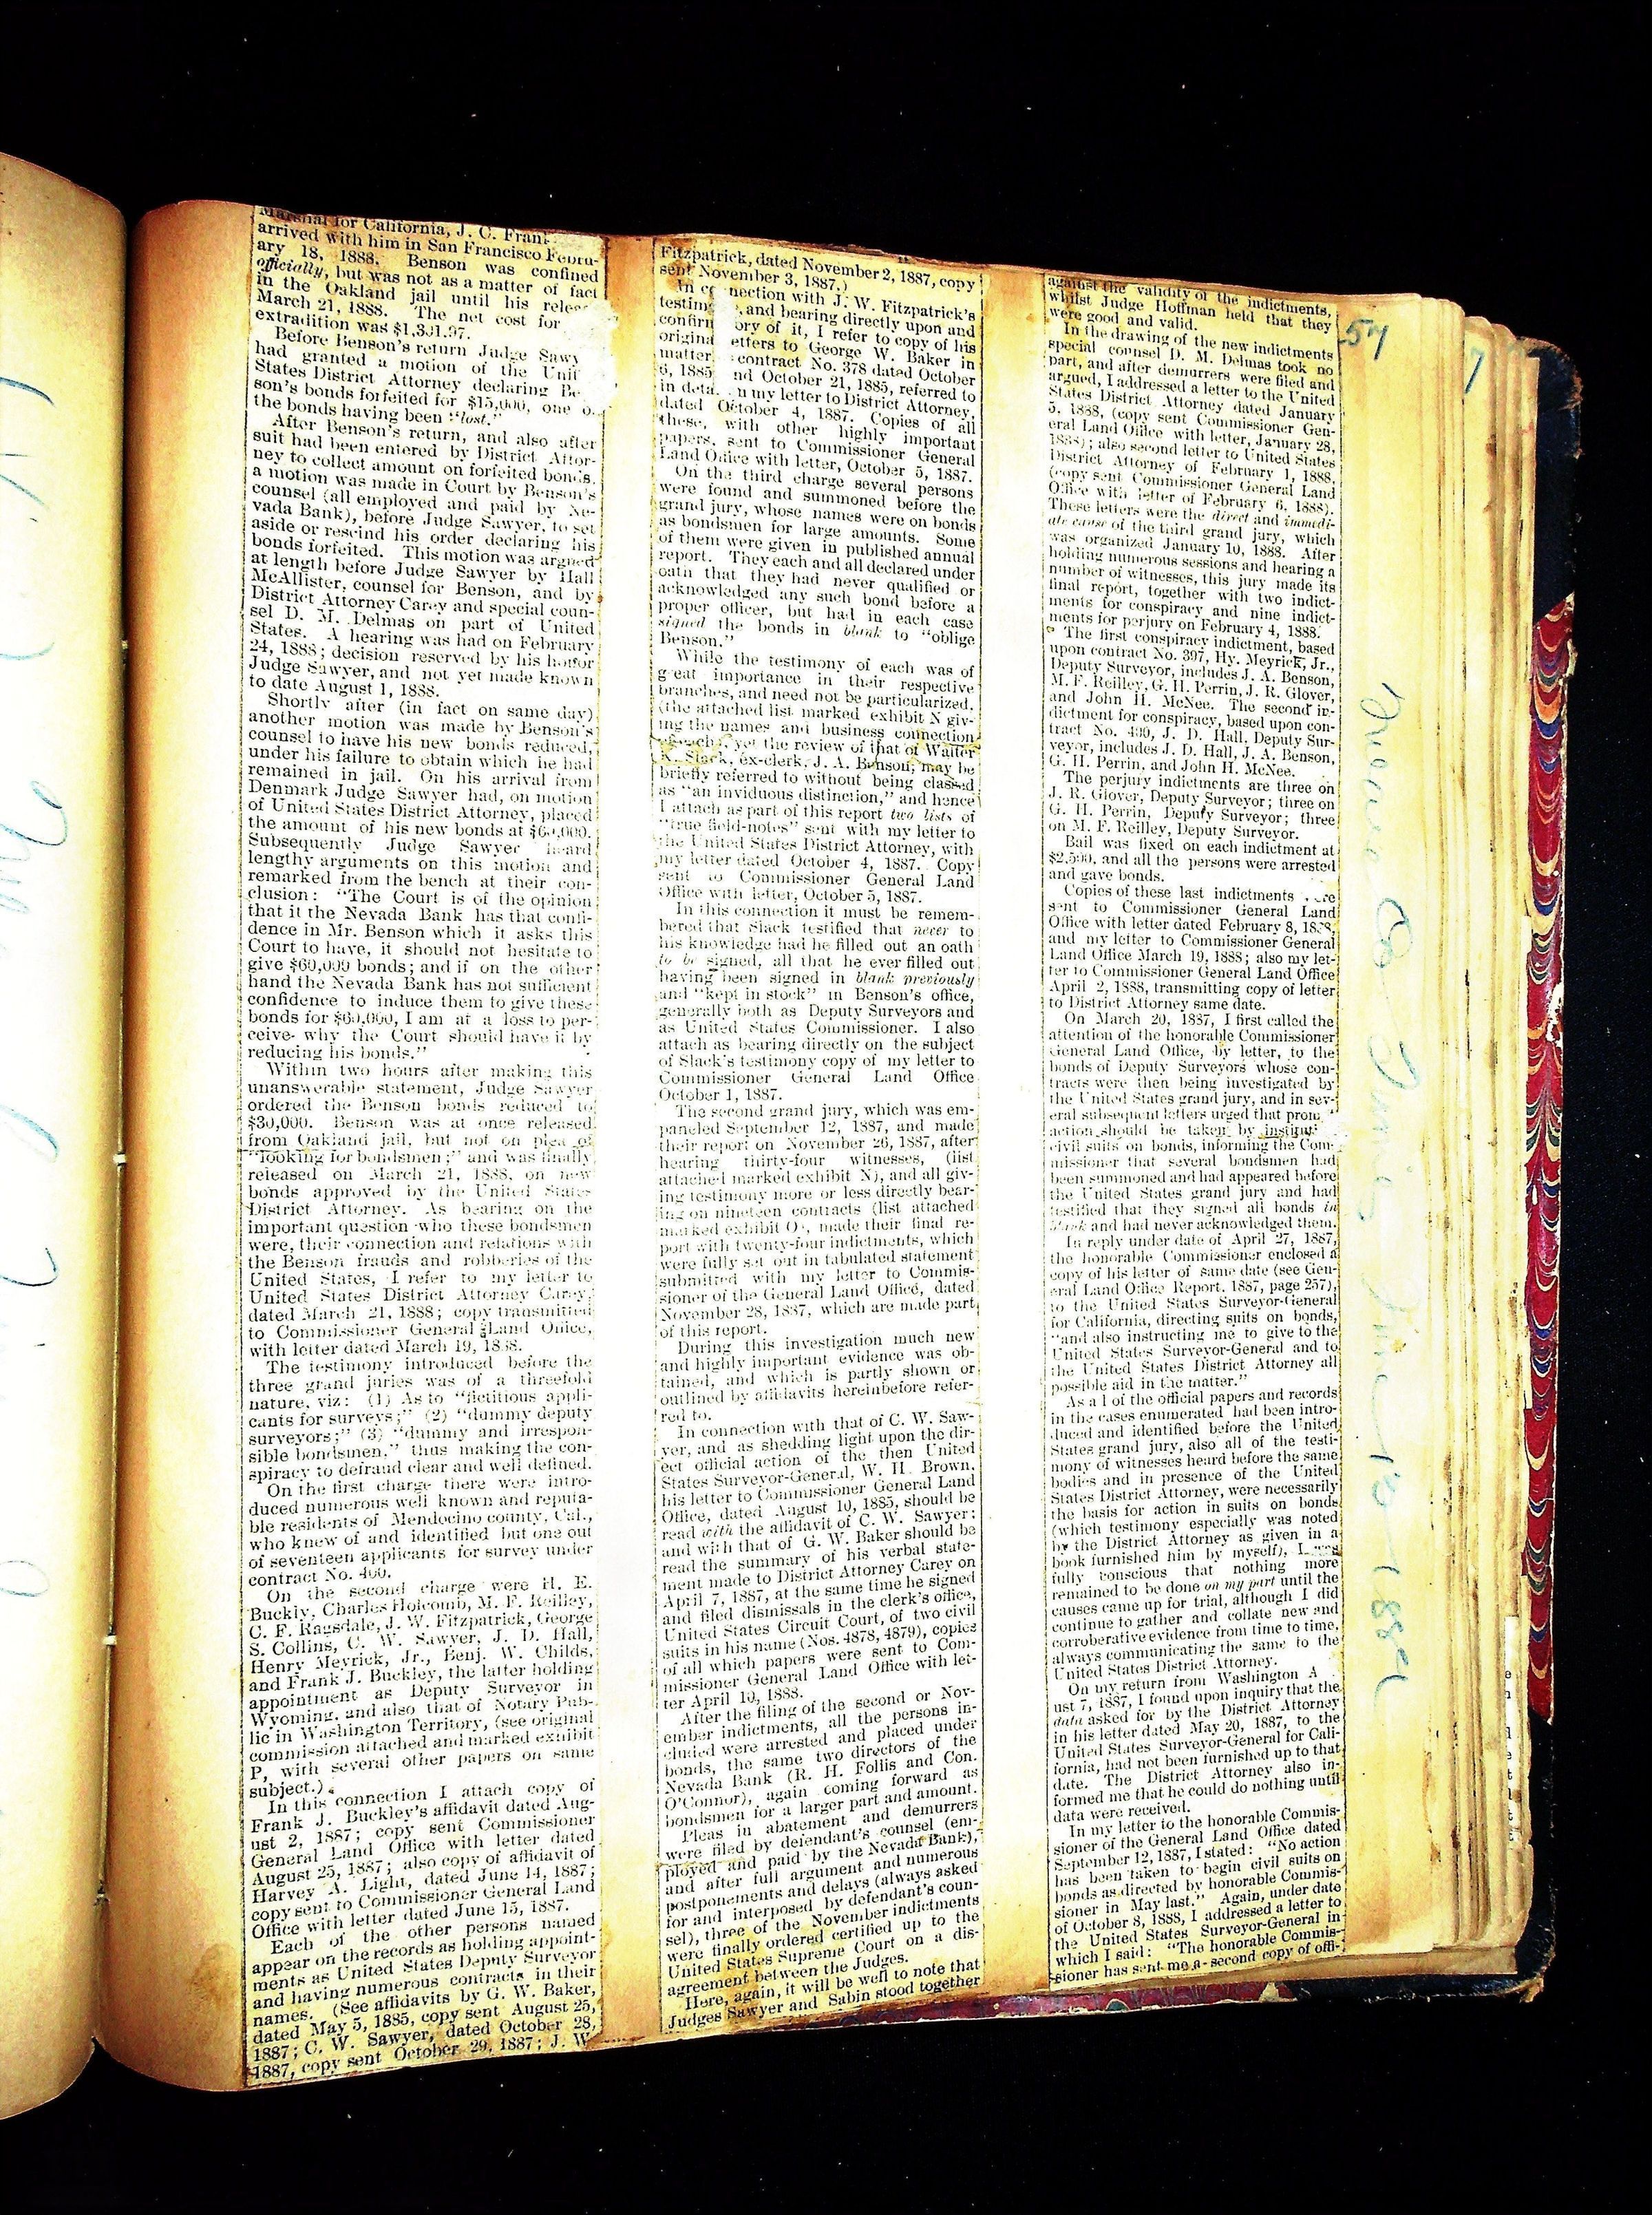 Marshal for California, J. C. Frank
arrived with him in San Francisco Febru-
ary 18, 1888. Benson was confined
officially, but was not as a matter of fact
in the Oakland jail until his release
March 21, 1888. The net cost for
extradition was
Before Benson's return Judge Sawy
had granted a motion of the Unit
States District Attorney declaring Be
son's bonds forfeited for $15,000, one o
the bonds having been "lost."
After Benson's return, and also after
suit had been entered by District Attor-
ney to collect amount on forfeited bonds,
a motion was made in Court by Benson's
counsel (all employed and paid by Ne-
vada Bank), before Judge Sawyer, to set
aside or rescind his order declaring his
bonds forfeited. This motion was argued
at length before Judge Sawyer by Hall
McAllister, counsel for Benson, and by
District Attorney Carey and special coun-
sel D. M. Delmas on part of United
States. A hearing was had on February
24, 1888; decision reserved by his honor
Judge Sawyer, and not yet made known
to date August 1, 1888.
Shortly after (in fact on same day)
another motion was made by Benson's
counsel to have his new bonds reduced,
under his failure to obtain which he had
remained in jail. On his arrival from
Denmark Judge Sawyer had, on motion
of United States District Attorney, placed
the amount of his new bonds at $60,000.
Subsequently Judge Sawyer heard
lengthy arguments on this motion and
remarked from the bench at their con-
clusion: "The Court is of the opinion
that if the Nevada Bank has that confi-
dence in Mr. Benson which it asks this
Court to have, it should not hesitate to
give $60,000 bonds; and if on the other
hand the Nevada Bank has not sufficient
confidence to induce them to give these
bonds for $60,000, I am at a loss to per-
ceive why the Court should have it by
reducing his bonds."
Within two hours after making this
unanswerable statement, Judge Sawyer
ordered the Benson bonds reduced to
$30,000. Benson was at once released
from Oakland jail, but not on plea of
"looking for bondsmen;" and was finally
released on March 21, 1888, on new
bonds approved by the United States
District Attorney. As bearing on the
important question who these bondsmen
were, their connection and relations with
the Benson frauds and robberies of the
United States, I refer to my letter to
United States District Attorney Carey,
dated March 21, 1888; copy transmitted
to Commissioner General Land Office,
with letter dated March 19, 1888.
The testimony introduced before the
three grand juries was of a threefold
nature, viz: (1) As to "fictitious appli-
cants for surveys;" (2) "dummy deputy
surveyors;" (3) "dummy and irrespon-
sible bondsmen," thus making the con-
spiracy to defraud clear and well defined.
On the first charge there were intro-
duced numerous well known and reputa-
ble residents of Mendocino county, Cal.,
who knew of and identified but one out
of seventeen applicants for survey under
contract No. 400.
On the second charge were H. E.
Buckly, Charles Holcomb, M. F. Reilley,
C. F. Ragsdale, J. W. Fitzpatrick, George
S. Collins, C. W. Sawyer, J. D. Hall,
Henry Meyrick, Jr., Benj. W. Childs,
and Frank J. Buckley, the latter holding
appointment as Deputy Surveyor in
Wyoming, and also that of Notary Pub-
lic in Washington Territory, (see original
commission attached and marked exhibit
P, with several other papers on same
subject.)
In this connection I attach copy of
Frank J. Buckley's affidavit dated Aug-
ust 2, 1887; copy sent Commissioner
General Land Office with letter dated
August 25, 1887; also copy of affidavit of
Harvey A. Light, dated June 14, 1887;
copy sent to Commissioner General Land
Office with letter dated June 15, 1887.
Each of the other persons named
appear on the records as holding appoint-
ments as United States Deputy Surveyor
and having numerous contracts in their
names. (See affidavits by G. W. Baker,
dated May 5, 1885, copy sent August 25,
1887; C. W. Sawyer, dated October 28,
1887, copy sent October 29, 1887; J. W.
Fitzpatrick, dated November 2, 1887, copy
sent November 3, 1887.)
In co nection with J. W. Fitzpatrick's
testim , and bearing directly upon and
confirm ory of it, I refer to copy of his
origina etters to George W. Baker in
matter contract No. 378 dated October
6, 1885 nd October 21, 1885, referred to
in deta n my letter to District Attorney,
dated October 4, 1887. Copies of all
these, with other highly important
papers, sent to Commissioner General
Land Office with letter, October 5, 1887.
On the third charge several persons
were found and summoned before the
grand jury, whose names were on bonds
as bondsmen for large amounts. Some
of them were given in published annual
report. They each and all declared under
oath that they had never qualified or
acknowledged any such bond before a
proper officer, but had in each case
signed the bonds in blank to "oblige
Benson."
While the testimony of each was of
great importance in their respective
branches, and need not be particularized,
(the attached list marked exhibit N giv-
ing the names and business connection
of each), yet the review of that of Walter
K. Slack, ex-clerk, J. A. Benson, may be
briefly referred to without being classed
as "an inviduous distinction," and hence
I attach as part of this report two lists of
"true field-notes" sent with my letter to
the United States District Attorney, with
my letter dated October 4, 1887. Copy
sent to Commissioner General Land
Office with letter, October 5, 1887.
In this connection it must be remem-
bered that Slack testified that never to
his knowledge had he filled out an oath
to be signed, all that he ever filled out
having been signed in blank previously
and "kept in stock" in Benson's office,
generally both as Deputy Surveyors and
as United States Commissioner. I also
attach as bearing directly on the subject
of Slack's testimony copy of my letter to
Commissioner General Land Office
October 1, 1887.
The second grand jury, which was em-
paneled September 12, 1887, and made
their report on November 26, 1887, after
hearing thirty-four witnesses, (list
attached marked exhibit N), and all giv-
ing testimony more or less directly bear-
ing on nineteen contracts (list attached
marked exhibit O), made their final re-
port with twenty-four indictments, which
were fully set out in tabulated statement
submitted with my letter to Commis-
sioner of the General Land Office, dated
November 28, 1887, which are made part
of this report.
During this investigation much new
and highly important evidence was ob-
tained, and which is partly shown or
outlined by affidavits hereinbefore refer-
red to.
In connection with that of C. W. Saw-
yer, and as shedding light upon the dir-
ect official action of the then United
States Surveyor-General, W. H. Brown,
his letter to Commissioner General Land
Office, dated August 10, 1885, should be
read with the affidavit of C. W. Sawyer;
and with that of G. W. Baker should be
read the summary of his verbal state-
ment made to District Attorney Carey on
April 7, 1887, at the same time he signed
and filed dismissals in the clerk's office,
United States Circuit Court, of two civil
suits in his name (Nos. 4878, 4879), copies
of all which papers were sent to Com-
missioner General Land Office with let-
ter April 10, 1888.
After the filing of the second or Nov-
ember indictments, all the persons in-
cluded were arrested and placed under
bonds, the same two directors of the
Nevada Bank (R. H. Follis and Con.
O'Connor), again coming forward as
bondsmen for a larger part and amount.
Pleas in abatement and demurrers
were filed by defendant's counsel (em-
ployed and paid by the Nevada Bank),
and after full argument and numerous
postponements and delays (always asked
for and interposed by defendant's coun-
sel), three of the November indictments
were finally ordered certified up to the
United States Supreme Court on a dis-
agreement between the Judges.
Here, again, it will be well to note that
Judges Sawyer and Sabin stood together
against the validity of the indictments,
whilst Judge Hoffman held that they
were good and valid.
In the drawing of the new indictments
special counsel D. M. Delmas took no
part, and after demurrers were filed and
argued, I addressed a letter to the United
States District Attorney dated January
5, 1888, (copy sent Commissioner Gen-
eral Land Office with letter, January 28,
1888); also second letter to United States
District Attorney of February 1, 1888,
(copy sent Commissioner General Land
Office with letter of February 6, 1888).
These letters were the direct and immedi-
ate cause of the third grand jury, which
was organized January 10, 1888. After
holding numerous sessions and hearing a
number of witnesses, this jury made its
final report, together with two indict-
ments for conspiracy and nine indict-
ments for perjury on February 4, 1888.
The first conspiracy indictment, based
upon contract No. 397, Hy. Meyrick, Jr.,
Deputy Surveyor, includes J. A. Benson,
M. F. Reilley, G. H. Perrin, J. R. Glover,
and John H. McNee. The second in-
dictment for conspiracy, based upon con-
tract No. 400, J. D. Hall, Deputy Sur-
veyor, includes J. D. Hall, J. A. Benson,
G. H. Perrin, and John H. McNee.
The perjury indictments are three on
J. R. Glover, Deputy Surveyor; three on
G. H. Perrin, Deputy Surveyor; three
on M. F. Reilley, Deputy Surveyor.
Bail was fixed on each indictment at
$2,500, and all the persons were arrested
and gave bonds.
Copies of these last indictments were
sent to Commissioner General Land
Office with letter dated February 8, 1888,
and my letter to Commissioner General
Land Office March 19, 1888; also my let-
ter to Commissioner General Land Office
April 2, 1888, transmitting copy of letter
to District Attorney same date.
On March 20, 1887, I first called the
attention of the honorable Commissioner
General Land Office, by letter, to the
bonds of Deputy Surveyors whose con-
tracts were then being investigated by
the United States grand jury, and in sev-
eral subsequent letters urged that prom
action should be taken by institut
civil suits on bonds, informing the Com-
missioner that several bondsmen had
been summoned and had appeared before
the United States grand jury and had
testified that they signed all bonds in
blank and had never acknowledged them.
In reply under date of April 27, 1887,
the honorable Commissioner enclosed a
copy of his letter of same date (see Gen-
eral Land Office Report, 1887, page 257),
to the United States Surveyor-General
for California, directing suits on bonds,
"and also instructing me to give to the
United States Surveyor-General and to
the United States District Attorney all
possible aid in the matter."
As all of the official papers and records
in the cases enumerated had been intro-
duced and identified before the United
States grand jury, also all of the testi-
mony of witnesses heard before the same
bodies and in presence of the United
States District Attorney, were necessarily
the basis for action in suits on bonds
(which testimony especially was noted
by the District Attorney as given in a
book furnished him by myself), I was
fully conscious that nothing more
remained to be done on my part until the
causes came up for trial, although I did
continue to gather and collate new and
corroberative evidence from time to time,
always communicating the same to the
United States District Attorney.
On my return from Washington A
ust 7, 1887, I found upon inquiry that the
data asked for by the District Attorney
in his letter dated May 20, 1887, to the
United States Surveyor-General for Cali-
fornia, had not been furnished up to that
date. The District Attorney also in-
formed me that he could do nothing until
data were received.
In my letter to the honorable Commis-
sioner of the General Land Office dated
September 12, 1887, I stated: "No action
has been taken to begin civil suits on
bonds as directed by honorable Commis-
sioner in May last." Again, under date
of October 8, 1888, I addressed a letter to
the United States Surveyor-General in
which I said: "The honorable Commis-
sioner has sent me a second copy of offi-
57
7